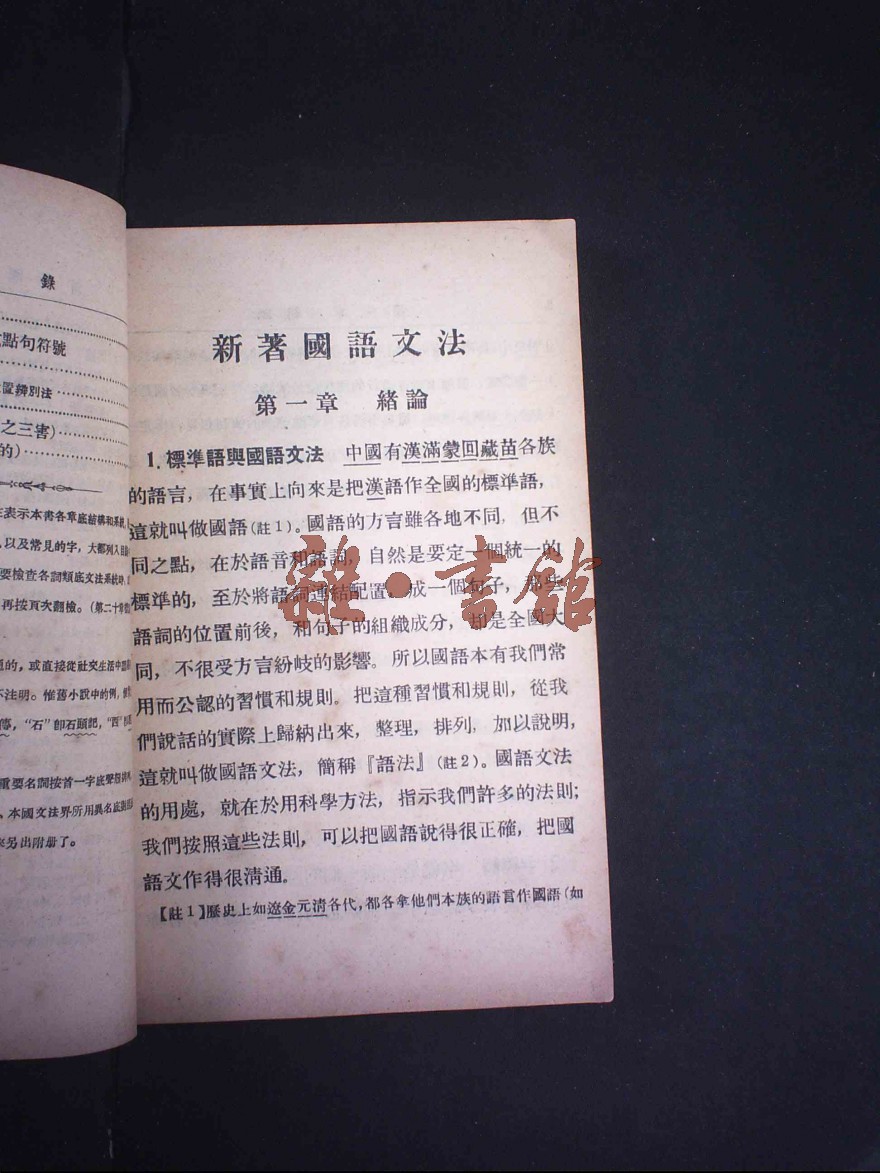 錄
點句符號
置辨別法
之三害)
的)
在表示本書各章底結構和系統
以及常見的字，大都列入
要檢查各詞類底文法系統時
再按頁次翻檢。(第二十
的，或直接從社交生活中
不注明。惟舊小說中的例，
傳，“石”卽石頭記，“西”
重要名詞按首一字底聲
、本國文法界所用異名底
來另出附册了。
新著國語文法
第一章　緒論
1. 標準語與國語文法　中國有漢滿蒙回藏苗各族
的語言，在事實上向來是把漢語作全國的標準語，
這就叫做國語(註1)。國語的方言雖各地不同，但不
同之點，在於語音和語詞，自然是要定一個統一的
標準的，至於將語詞連結配置，成一個句子，那些
語詞的位置前後，和句子的組織成分，却是全國大
同，不很受方言紛岐的影響。所以國語本有我們常
用而公認的習慣和規則。把這種習慣和規則，從我
們說話的實際上歸納出來，整理，排列，加以說明，
這就叫做國語文法，簡稱『語法』(註2)。國語文法
的用處，就在於用科學方法，指示我們許多的法則；
我們按照這些法則，可以把國語說得很正確，把國
語文作得很淸通。
【註1】歷史上如遼金元淸各代，都各拿他們本族的語言作國語(如
雜·書館